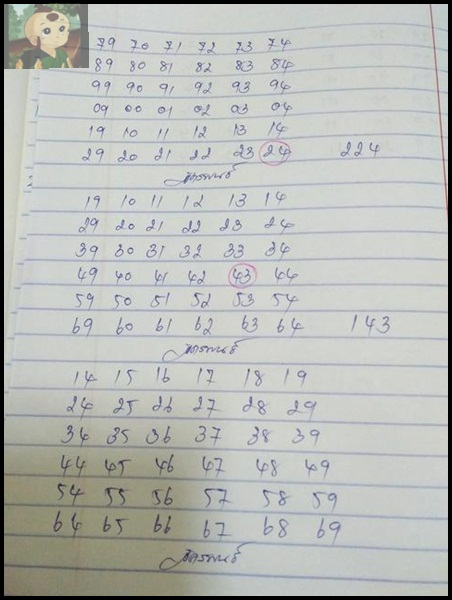 79 70 71 72 73 74
89 80 81 82 83 84
99 90 91 92 93 94
09 00 01 02 03 04
19 10 11 12 13 14
29 20 21 22 23 24 224
19 10 11 12 13 14
29 20 21 22 23 24
39 30 31 32 33 34
49 40 41 42 43 44
59 50 51 52 53 54
69 60 61 62 63 64 143
14 15 16 17 18 19
24 25 26 27 28 29
34 35 36 37 38 39
44 45 46 47 48 49
54 55 56 57 58 59
64 65 66 67 68 69